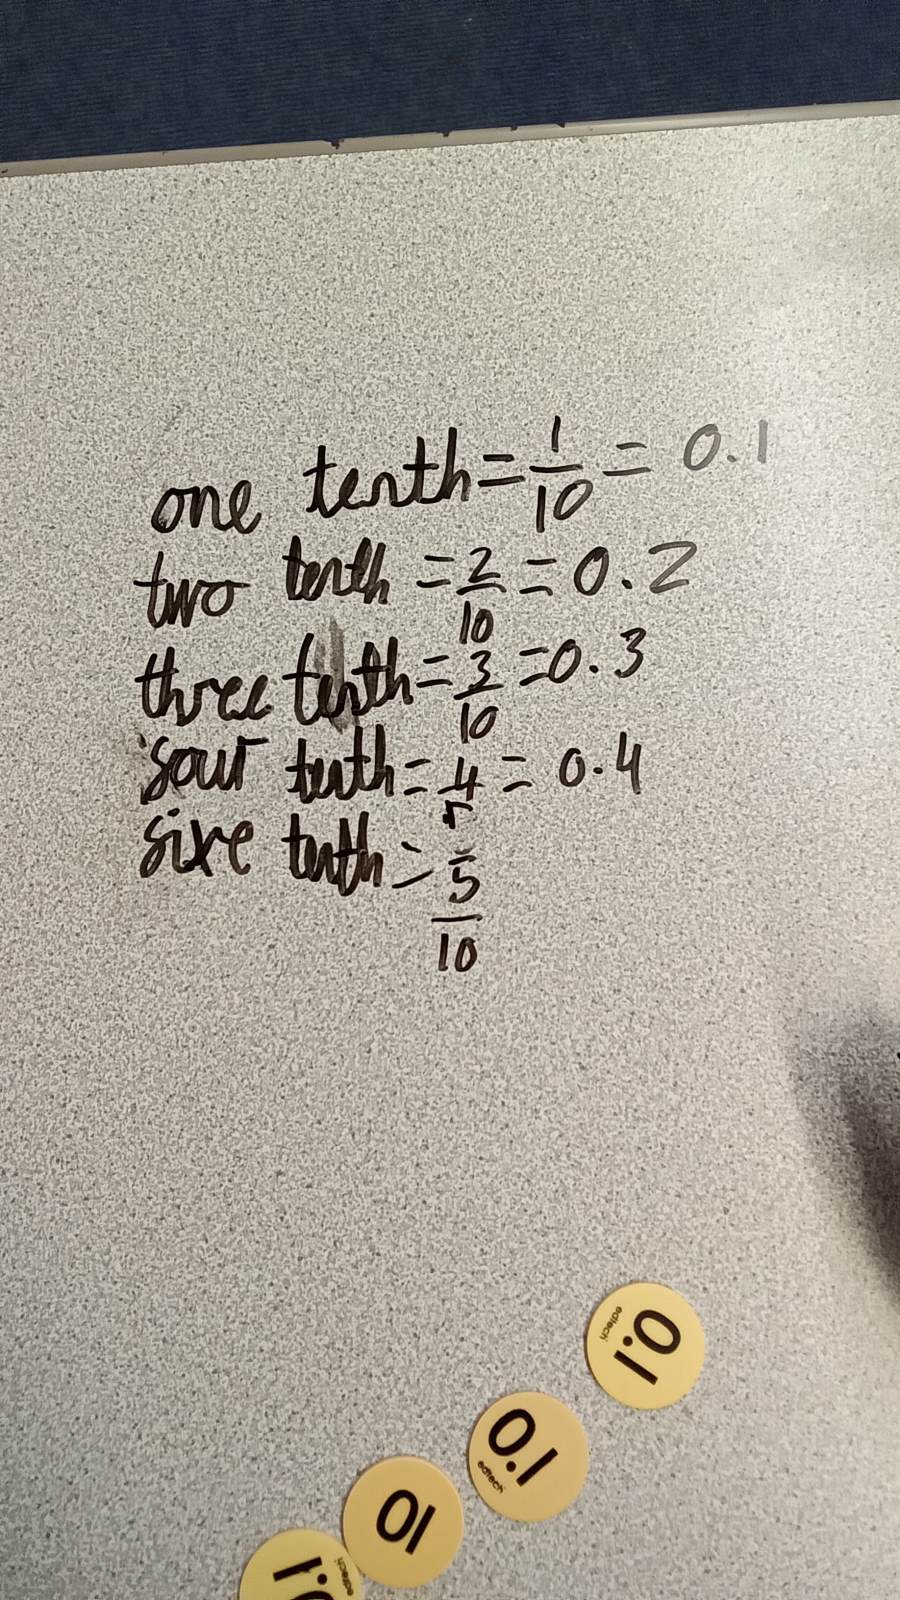 one tenth = 1/10 = 0.1
two tenth = 2/10 = 0.2
three tenth = 3/10 = 0.3
sour tenth = 4/5 = 0.4
sixe tenth = 5/10
0.1 edtech
0.1 edtech
10
0.1 edtech